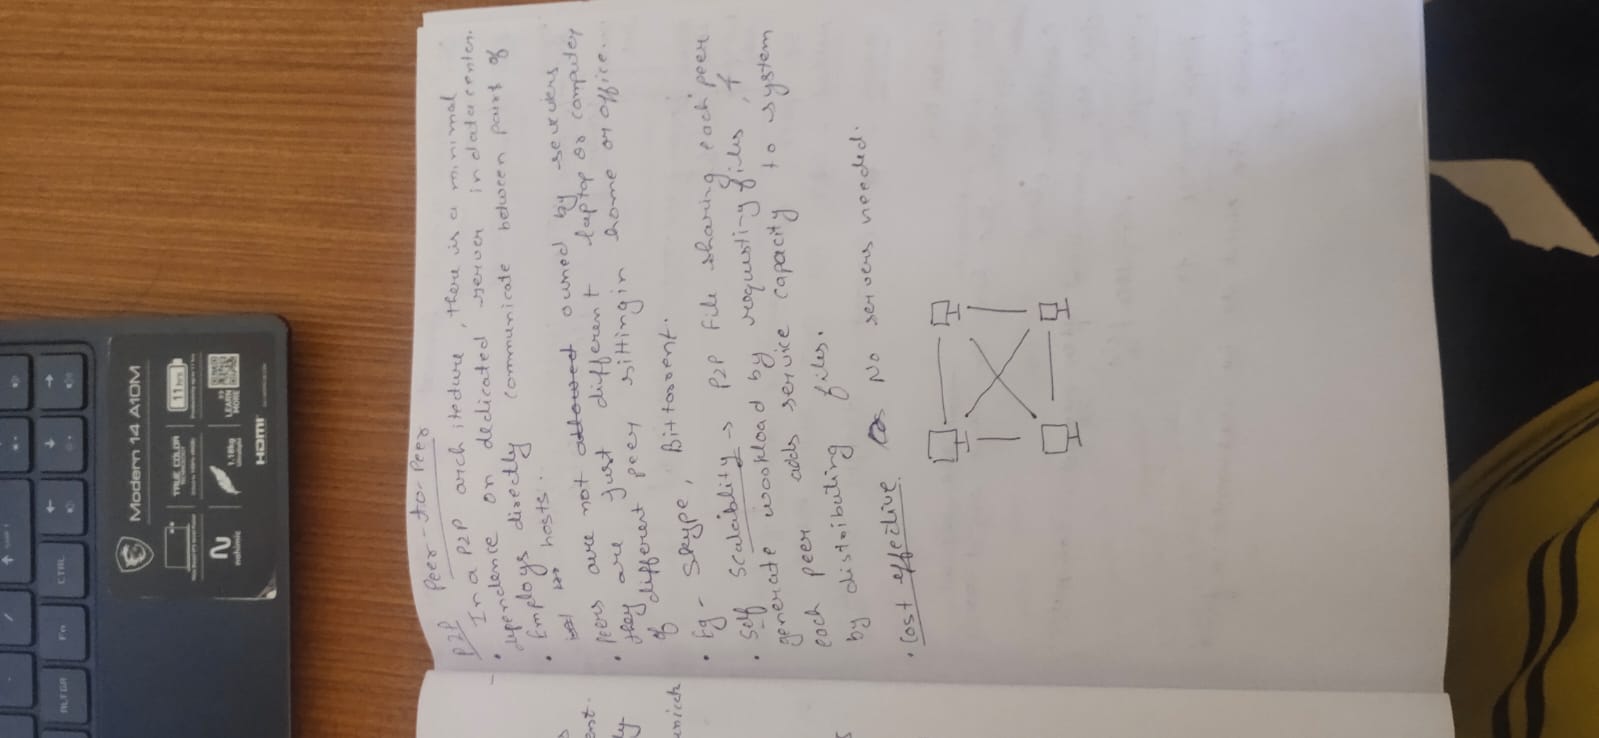 ALT GR Fn CTRL
Modern 14 A10M
TRUE COLOR
TECHNOLOGY
11 hrs
nahimic
1.18kg
Ultralight
>> LEARN MORE
HDMI
P2P Peer-to-Peer
• In a P2P architedure, there is a minimal
dependence on dedicated server in data center.
• Employs directly communicate between pairs of
hosts.
• Peers are not allowed owned by servers
they are just different laptop or computer
of different peer sitting in home or office.
• Eg - Skype, Bittorrent.
• Self Scalablity → P2P file sharing each peer
generate workload by requesting files, &
each peer adds service capacity to system
by distributing files.
• Cost effective. No servers needed.
ent.
ly
unicch
s